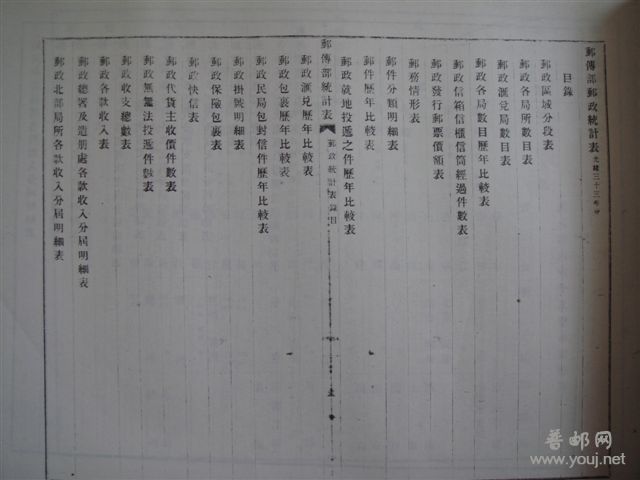 郵傳部郵政統計表 光緒三十三年分
目錄
郵政區域分段表
郵政各局所數目表
郵政滙兌局數目表
郵政各局數目歷年比較表
郵政信箱信櫃信筒經過件數表
郵政發行郵票價額表
郵務情形表
郵件分類明細表
郵件歷年比較表
郵政就地投遞之件歷年比較表
郵傳部統計表 郵政統計表錄目
郵政滙兌歷年比較表
郵政包裹歷年比較表
郵政民局包封信件歷年比較表
郵政掛號明細表
郵政保險包裹表
郵政快信表
郵政代貨主收價件數表
郵政無法投遞件數表
郵政收支總數表
郵政各款收入表
郵政總署及造册處各款收入分屆明細表
郵政北部局所各款收入分屆明細表
普邮网
www.youj.net